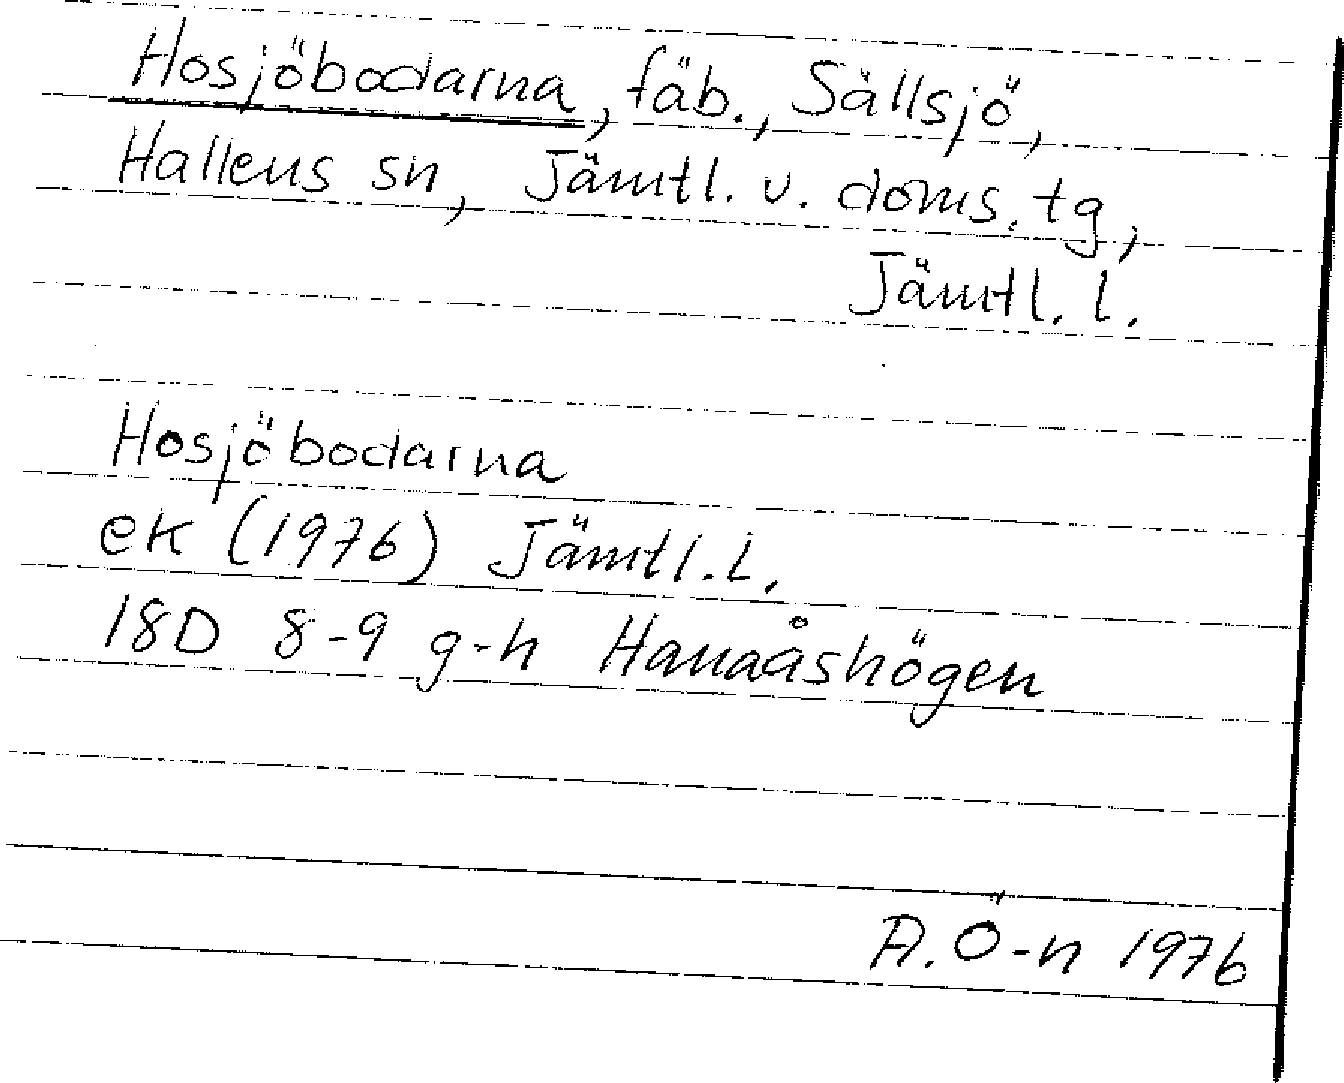 Hosjöbodarna, fäb., Sällsjö,
Hallens sn, Jämtl. v. doms. tg,
Jämtl. l.
Hosjöbodarna
ek (1976) Jämtl. l.
18D 8-9 g-h Hanaåshögen
A. Ö-n 1976